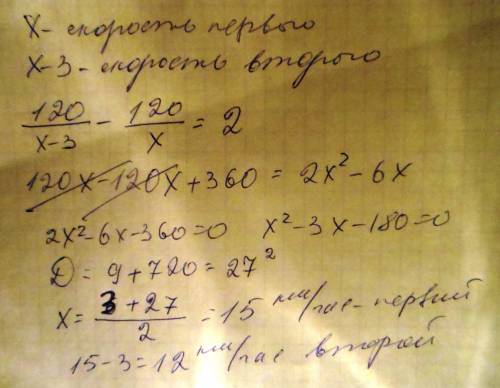 X - скорость первого
X-3 - скорость второго
120/(x-3) - 120/x = 2
120x - 120x + 360 = 2x² - 6x
2x² - 6x - 360 = 0   x² - 3x - 180 = 0
D = 9 + 720 = 27²
x = (3 + 27)/2 = 15 км/час - первий
15 - 3 = 12 км/час второй